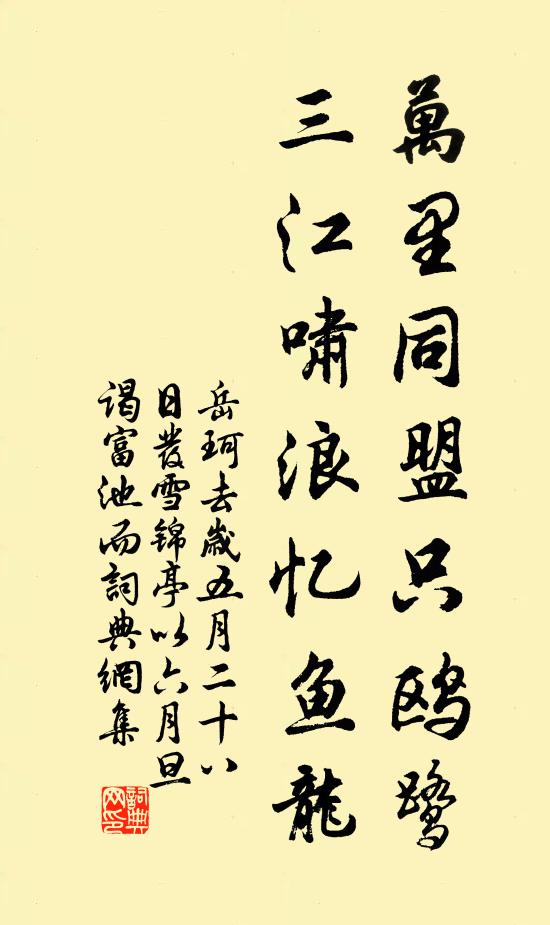 萬里同盟只鸥鹭
三江啸浪忆鱼龍
岳珂去歲五月二十八
日發雪锦亭以六月旦
谒富池而詞典網集
詞典网印